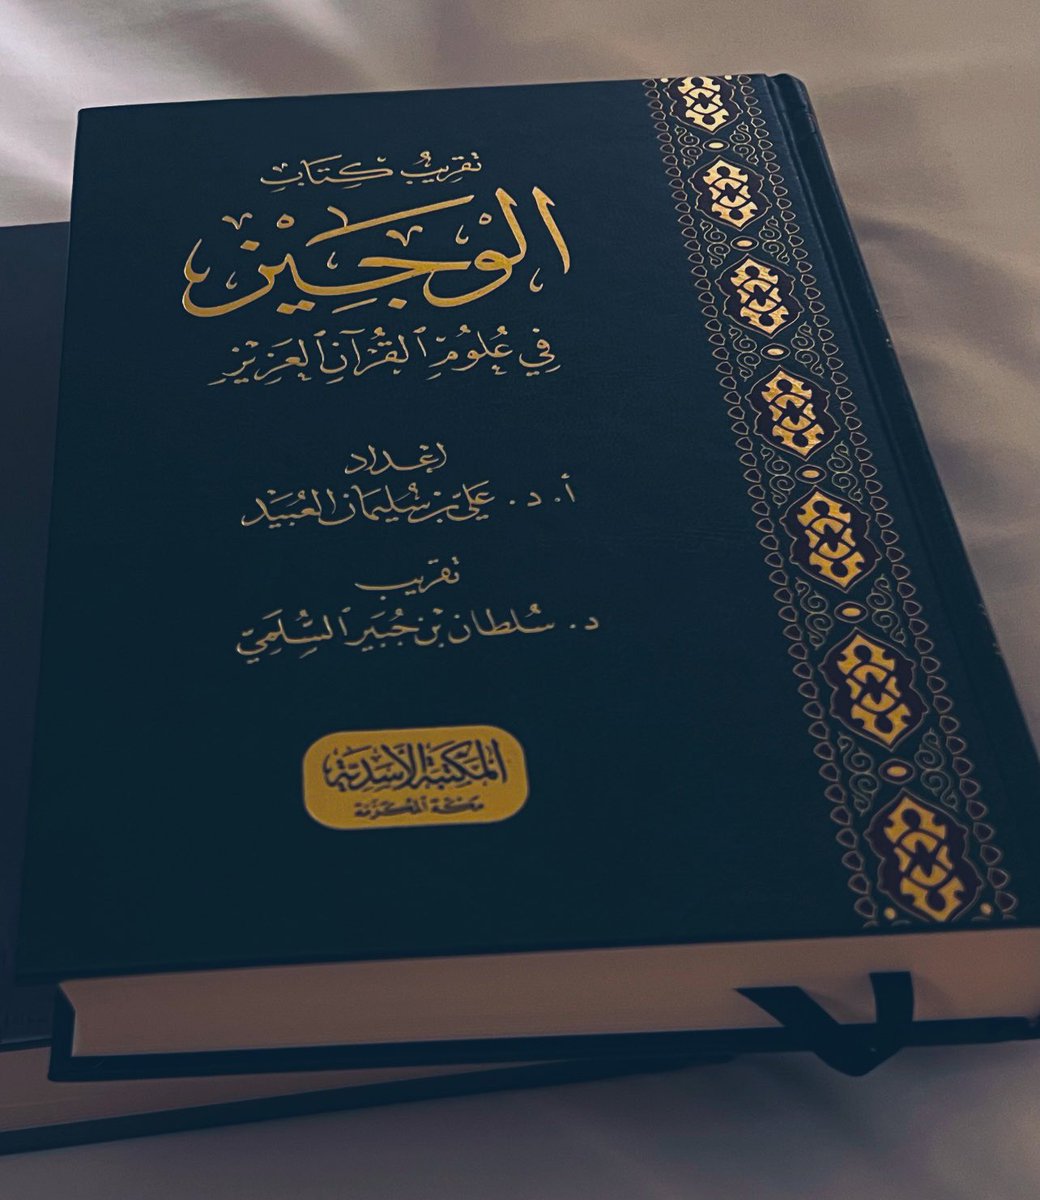 تقريبُ كِتَابِ
الْوَجِيْز
فِي عُلُومِ ٱلْقُرْآنِ ٱلْعَزِيْزِ
إعْدَاد
أ. د. عَلِيّ بْن سُلَيْمَان العُبَيْد
تقريب
د. سُلطان بْن حُبَير ٱلسُّلَمِيّ
المَكتَبَة الأَسَدِيَّة
مَكَّة ٱلمُكَرَّمَة